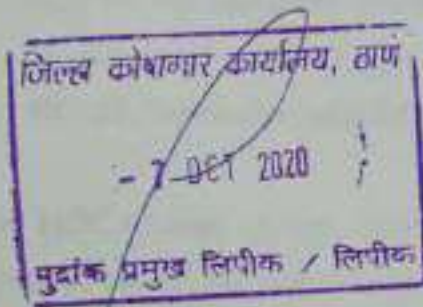 जिल्हा कोषागार कार्यालय, ठाणे
- 7 OCT 2020
मुद्रांक प्रमुख लिपीक / लिपीक